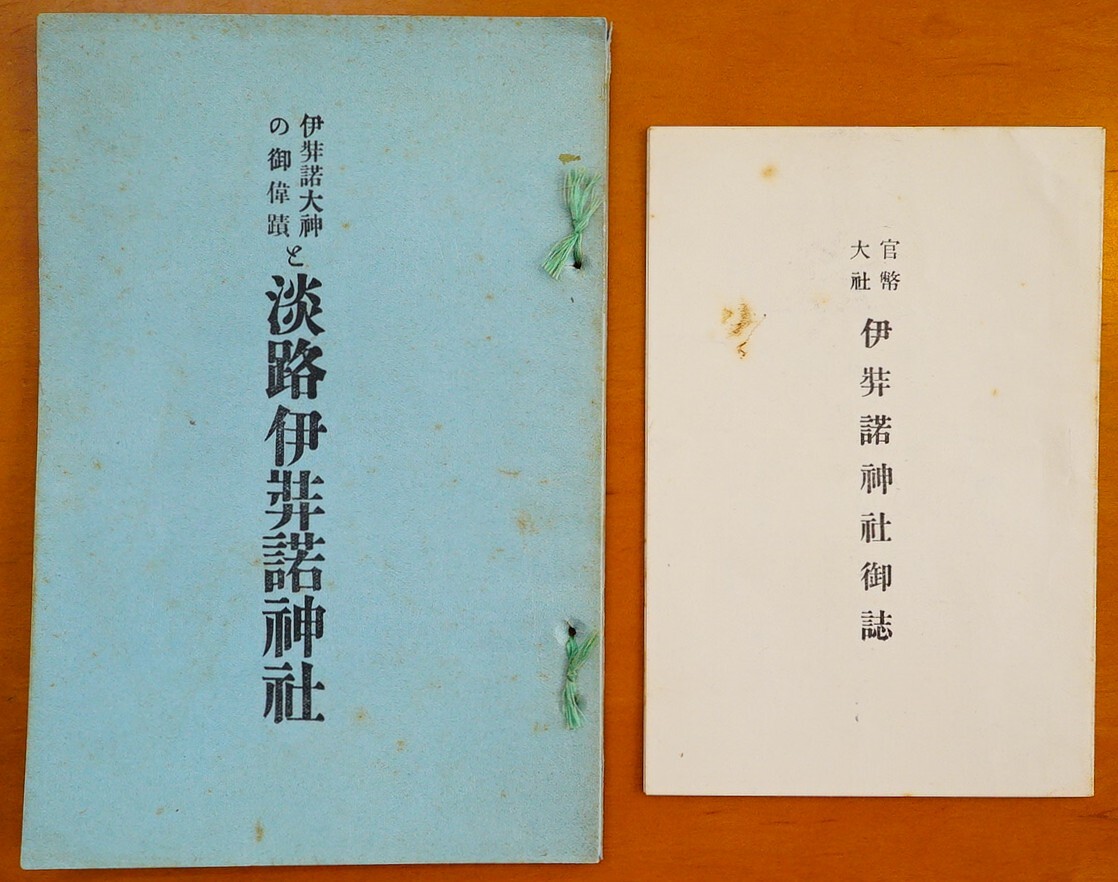 伊弉諾大神
の御偉蹟
と
淡路伊弉諾神社
官幣
大社
伊弉諾神社御誌